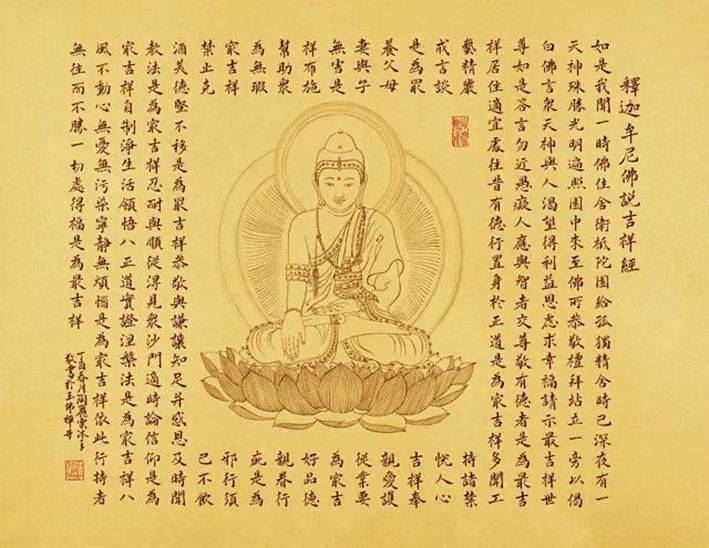 釋迦牟尼佛說吉祥經
如是我聞一時佛住舍衛祇陀園給孤獨精舍時已深夜有一
天神殊勝光明遍照園中來至佛所恭敬禮拜站立一旁以偈
白佛言眾天神與人渴望得利益思慮求幸福請示最吉祥世
尊如是答言勿近愚癡人應與智者交尊敬有德者是為最吉
祥居住適宜處往昔有德行置身於正道是為㝡吉祥多聞工
藝精嚴持諸禁
戒言談悅人心
是為㝡吉祥奉
養父母親愛護
妻與子從業要
無害是為㝡吉
祥布施好品德
幫助眾親眷行
為無瑕疵是為
㝡吉祥邪行須
禁止克已不飲
酒美德堅不移是為㝡吉祥恭敬與謙讓知足并感恩及時聞
教法是為㝡吉祥忍耐與順從得見眾沙門適時論信仰是為
㝡吉祥自制淨生活領悟八正道實證涅槃法是為㝡吉祥八
風不動心無憂無污染寧靜無煩惱是為㝡吉祥依此行持者
無往而不勝一切處得福是為最吉祥
丁酉春月沐手
敬書於玉佛禪寺